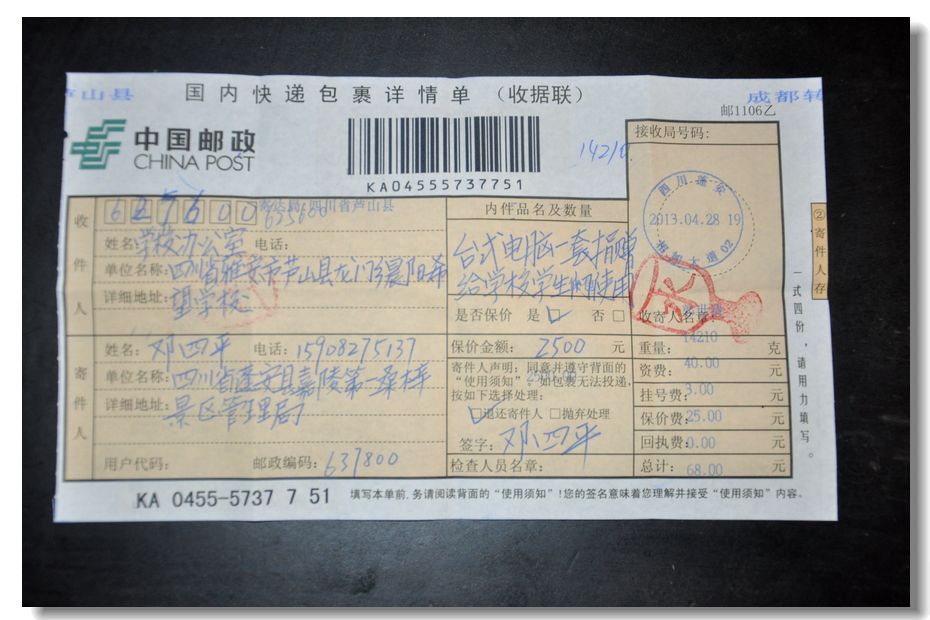 芦山县 国内快递包裹详情单 (收据联) 成都转
邮1106乙
中国邮政
CHINA POST
KA04555737751
14210
接收局号码:
四川蓬安
2013.04.28 19
大道02
收件人
625600 寄达局:四川省芦山县
625600
姓名:学校办公室 电话:
单位名称:四川省雅安市芦山县龙门乡晨阳希
详细地址:望学校
内件品名及数量
台式电脑一套捐赠
给学校学生们使用
是否保价 是 否
收寄人名章:
寄件人
姓名:邓四平 电话:15908275137
单位名称:四川省蓬安县嘉陵第一桑梓
详细地址:景区管理局
用户代码: 邮政编码:637800
保价金额:2500 元
寄件人声明:同意并遵守背面的
“使用须知”。如包裹无法投递,
按如下选择处理:
退还寄件人 抛弃处理
签字:邓四平
检查人员名章:
重量:14210 克
资费:40.00 元
挂号费:3.00 元
保价费:25.00 元
回执费:0.00 元
总计:68.00 元
②寄件人存
一式四份,请用力填写。
KA 0455-5737 7 51 填写本单前,务请阅读背面的“使用须知”!您的签名意味着您理解并接受“使用须知”内容。